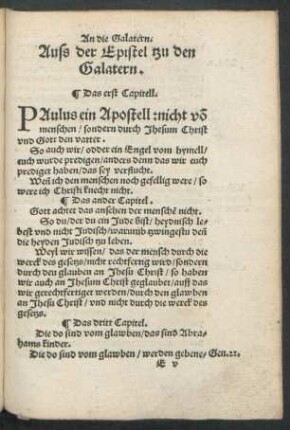 An die Galatern.
Auss der Epistel tzu den
Galatern.
¶ Das erst Capitell.
PAulus ein Apostell: nicht võ
menschen / sondern durch Jhesum Christ
vnd Gott den vatter.
So auch wir / odder ein Engel vom hymell /
euch wurde predigen / anders denn das wir euch
prediget haben / das sey verflucht.
Weñ ich den menschen noch gefellig were / so
were ich Christi knecht nicht.
¶ Das ander Capitel.
Gott achtet das ansehen der menschẽ nicht.
So du / der du ein Jude bist / heydnisch le-
best vnd nicht Judisch / warumb tzwingestu deñ
die heyden Judisch zu leben.
Weyl wir wissen / das der mensch durch die
werck des gesetzs / nicht rechtfertig wird / sondern
durch den glauben an Jhesu Christ / so haben
wir auch an Jhesum Christ geglaubet / auff das
wir gerechtfertiget werden / durch den glawben
an Jhesu Christ / vnd nicht durch die werck des
gesetzs.
¶ Das dritt Capitel.
Die do sind vom glawben / das sind Abra-
hams kinder.
Die do sind vom glawben / werden gebene- Gen.22.
E v